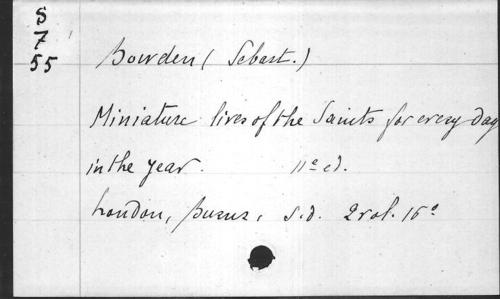 S
7
55
Bowden (Sebast.)
Miniature lives of the Saints for every day
in the year. 11e ed.
London, Burns, s.d. 2 vol. 16°